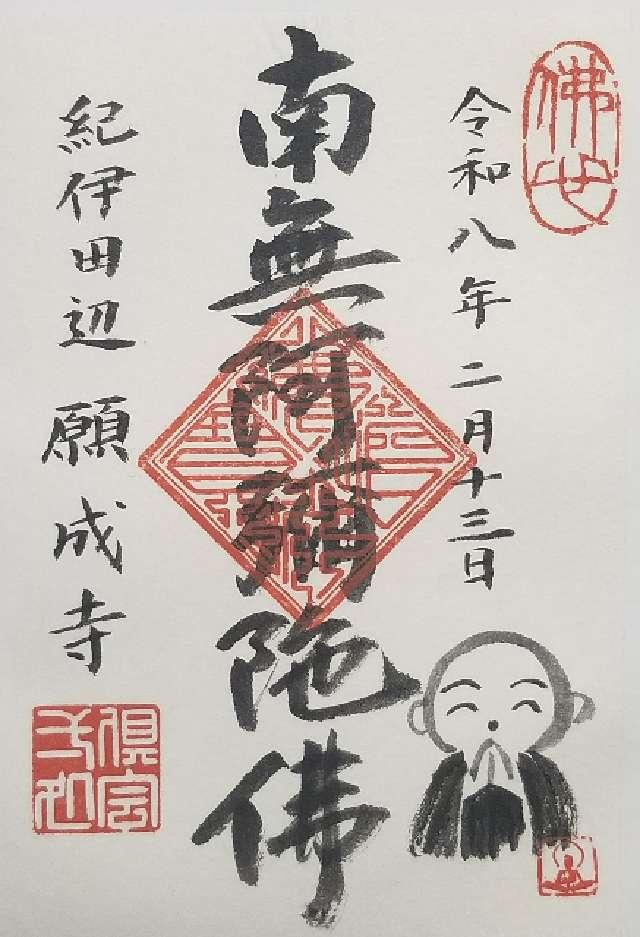 令和八年二月十三日
南無阿彌陀佛
紀伊田辺 願成寺